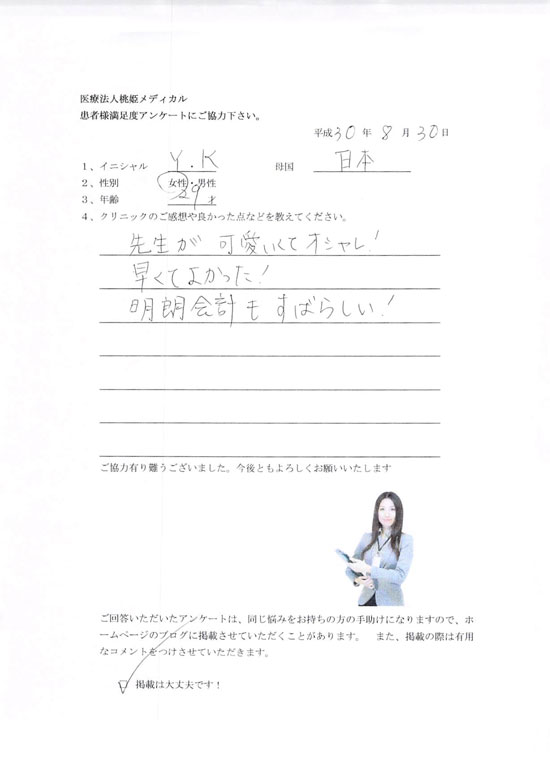 医療法人桃姫メディカル
患者様満足度アンケートにご協力下さい。
平成30年 8月30日
1、イニシャル Y.K 母国 日本
2、性別 女性・男性
3、年齢 29才
4、クリニックのご感想や良かった点などを教えてください。
先生が 可愛いくてオシャレ!
早くてよかった!
明朗会計も すばらしい!
ご協力有り難うございました。今後ともよろしくお願いいたします
ご回答いただいたアンケートは、同じ悩みをお持ちの方の手助けになりますので、ホ
ームページのブログに掲載させていただくことがあります。 また、掲載の際は有用
なコメントをつけさせていただきます。
☑ 掲載は大丈夫です!